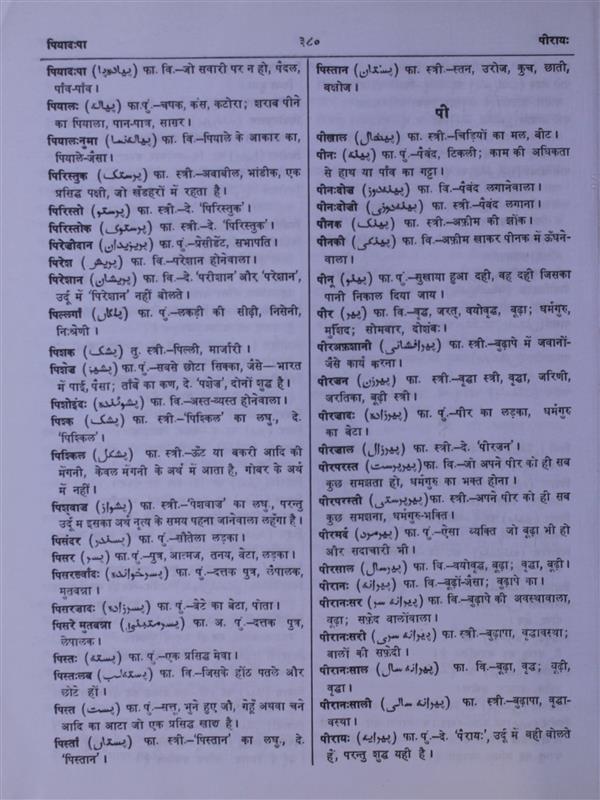 पियादःपा
३८०
पीरायः
पियादःपा (پیادہپا) फा. वि.–जो सवारी पर न हो, पैदल,
पाँव-पाँव।
पियालः (پیالہ) फा.पुं.–चषक, कंस, कटोरा; शराब पीने
का पियाला, पान-पात्र, सागर।
पियालःनुमा (پیالہنما) फा. वि.–पियाले के आकार का,
पियाले-जैसा।
पिरिस्तुक (پرستک) फा. स्त्री.–अबाबील, भांडीक, एक
प्रसिद्ध पक्षी, जो खँडहरों में रहता है।
पिरिस्तो (پرستو) फा. स्त्री.–दे. ‘पिरिस्तुक’।
पिरिस्तोक (پرستوک) फा. स्त्री.–दे. ‘पिरिस्तुक’।
पिरेज़ीदान (پریزیدان) फा. पुं.–प्रेसीडेंट, सभापति।
पिरेश (پریش) फा. वि.–परेशान होनेवाला।
पिरेशान (پریشان) फा. वि.–दे. ‘परीशान’ और ‘परेशान’,
उर्दू में ‘पिरेशान’ नहीं बोलते।
पिल्लगाँ (پلگاں) फा. पुं.–लकड़ी की सीढ़ी, निसेनी,
निःश्रेणी।
पिशक (پشک) तु. स्त्री.–पिल्ली, मार्जारी।
पिशेज़ (پشیز) फा. पुं.–सबसे छोटा सिक्का, जैसे—भारत
में पाई, पैसा; ताँबे का कण, दे. ‘पशेज़’, दोनों शुद्ध है।
पिशोइंदः (پشوئندہ) फा. वि.–अस्त-व्यस्त होनेवाला।
पिश्क (پشک) फा. स्त्री.–‘पिश्किल’ का लघु., दे.
‘पिश्किल’।
पिश्किल (پشکل) फा. स्त्री.–ऊँट या बकरी आदि की
मेंगनी, केवल मेंगनी के अर्थ में आता है, गोबर के अर्थ
में नहीं।
पिश्वाज़ (پشواز) फा. स्त्री.–‘पेशवाज़’ का लघु., परन्तु
उर्दू में इसका अर्थ नृत्य के समय पहना जानेवाला लहँगा है।
पिसंदर (پسندر) फा. पुं.–सौतेला लड़का।
पिसर (پسر) फा. पुं.–पुत्र, आत्मज, तनय, बेटा, लड़का।
पिसरख्वाँदः (پسرخواندہ) फा. पुं.–दत्तक पुत्र, लेपालक,
मुतबन्ना।
पिसरज़ादः (پسرزادہ) फा. पुं.–बेटे का बेटा, पोता।
पिसरे मुतबन्ना (پسر متبنیٰ) फा. अ. पुं.–दत्तक पुत्र,
लेपालक।
पिस्तः (پستہ) फा. पुं.–एक प्रसिद्ध मेवा।
पिस्तःलब (پستہلب) फा. वि.–जिसके होंठ पतले और
छोटे हों।
पिस्त (پست) फा. पुं.–सत्तू, भुने हुए जौ, गेहूँ अथवा चने
आदि का आटा जो एक प्रसिद्ध खाद्य है।
पिस्ताँ (پستاں) फा. स्त्री.–‘पिस्तान’ का लघु., दे.
‘पिस्तान’।
पिस्तान (پستان) फा. स्त्री.–स्तन, उरोज, कुच, छाती,
वक्षोज।
पी
पीख़ाल (پیخال) फा. स्त्री.–चिड़ियों का मल, बीट।
पीनः (پینہ) फा. पुं.–पैवंद, टिकली; काम की अधिकता
से हाथ या पाँव का गट्टा।
पीनःदोज़ (پینہدوز) फा. वि.–पैवंद लगानेवाला।
पीनःदोज़ी (پینہدوزی) फा. स्त्री.–पैवंद लगाना।
पीनक (پینک) फा. स्त्री.–अफ़ीम की झोंक।
पीनकी (پینکی) फा. वि.–अफ़ीम खाकर पीनक में ऊँघने-
वाला।
पीनू (پینو) फा. पुं.–सुखाया हुआ दही, वह दही जिसका
पानी निकाल दिया जाय।
पीर (پیر) फा. वि.–वृद्ध, जरत्, वयोवृद्ध, बूढ़ा; धर्मगुरु,
मुर्शिद; सोमवार, दोशंबः।
पीरअफ़्शानी (پیرافشانی) फा. स्त्री.–बुढ़ापे में जवानों-
जैसे कार्य करना।
पीरज़न (پیرزن) फा. स्त्री.–वृद्धा स्त्री, वृद्धा, जरिणी,
जरतिका, बूढ़ी स्त्री।
पीरज़ादः (پیرزادہ) फा. पुं.–पीर का लड़का, धर्मगुरु
का बेटा।
पीरज़ाल (پیرزال) फा. स्त्री.–दे. ‘पीरज़न’।
पीरपरस्त (پیرپرست) फा. वि.–जो अपने पीर को ही सब
कुछ समझता हो, धर्मगुरु का भक्त होना।
पीरपरस्ती (پیرپرستی) फा. स्त्री.–अपने पीर को ही सब
कुछ समझना, धर्मगुरु-भक्ति।
पीरमर्द (پیرمرد) फा. पुं.–ऐसा व्यक्ति जो बूढ़ा भी हो
और सदाचारी भी।
पीरसाल (پیرسال) फा. वि.–वयोवृद्ध, बूढ़ा; वृद्धा, बूढ़ी।
पीरानः (پیرانہ) फा. वि.–बूढ़ों-जैसा; बुढ़ापे का।
पीरानःसर (پیرانہ سر) फा. वि.–बुढ़ापे की अवस्थावाला,
वूढ़ा; सफ़ेद बालोंवाला।
पीरानःसरी (پیرانہ سری) फा. स्त्री.–बुढ़ापा, वृद्धावस्था;
बालों की सफ़ेदी।
पीरानःसाल (پیرانہ سال) फा. वि.–बूढ़ा, वृद्ध; बूढ़ी,
वृद्धा।
पीरानःसाली (پیرانہ سالی) फा. स्त्री.–बुढ़ापा, वृद्धा-
वस्था।
पीरायः (پیرایہ) फा. पुं.–दे. ‘पैरायः’, उर्दू में वही बोलते
हैं, परन्तु शुद्ध यही है।